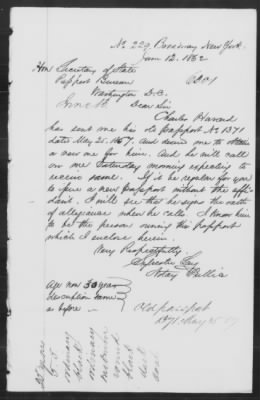 No. 229, Broadway New York.
June 12. 1862
Hon Secretary of State
Passport Bureau
Washington D.C.
Dear Sir
Charles
has sent me his old Passport No 1371
date May 25. 1857. and desires me to obtain
a new one for him. And he will call
on me Saturday morning expecting to
receive same. If it be regular for you
to issue a new passport without the affi-
davit. I will see that he signs the oath
of allegiance when he calls. I know him
to be the person owning this passport
which I enclose herein.
Very Respectfully
Sylvester Lay
Notary Public
Age now 30 years
description same
as before -
Old passport
1371 May 25 57
25 years
ordinary
black
ordinary
round
black
dark
dark